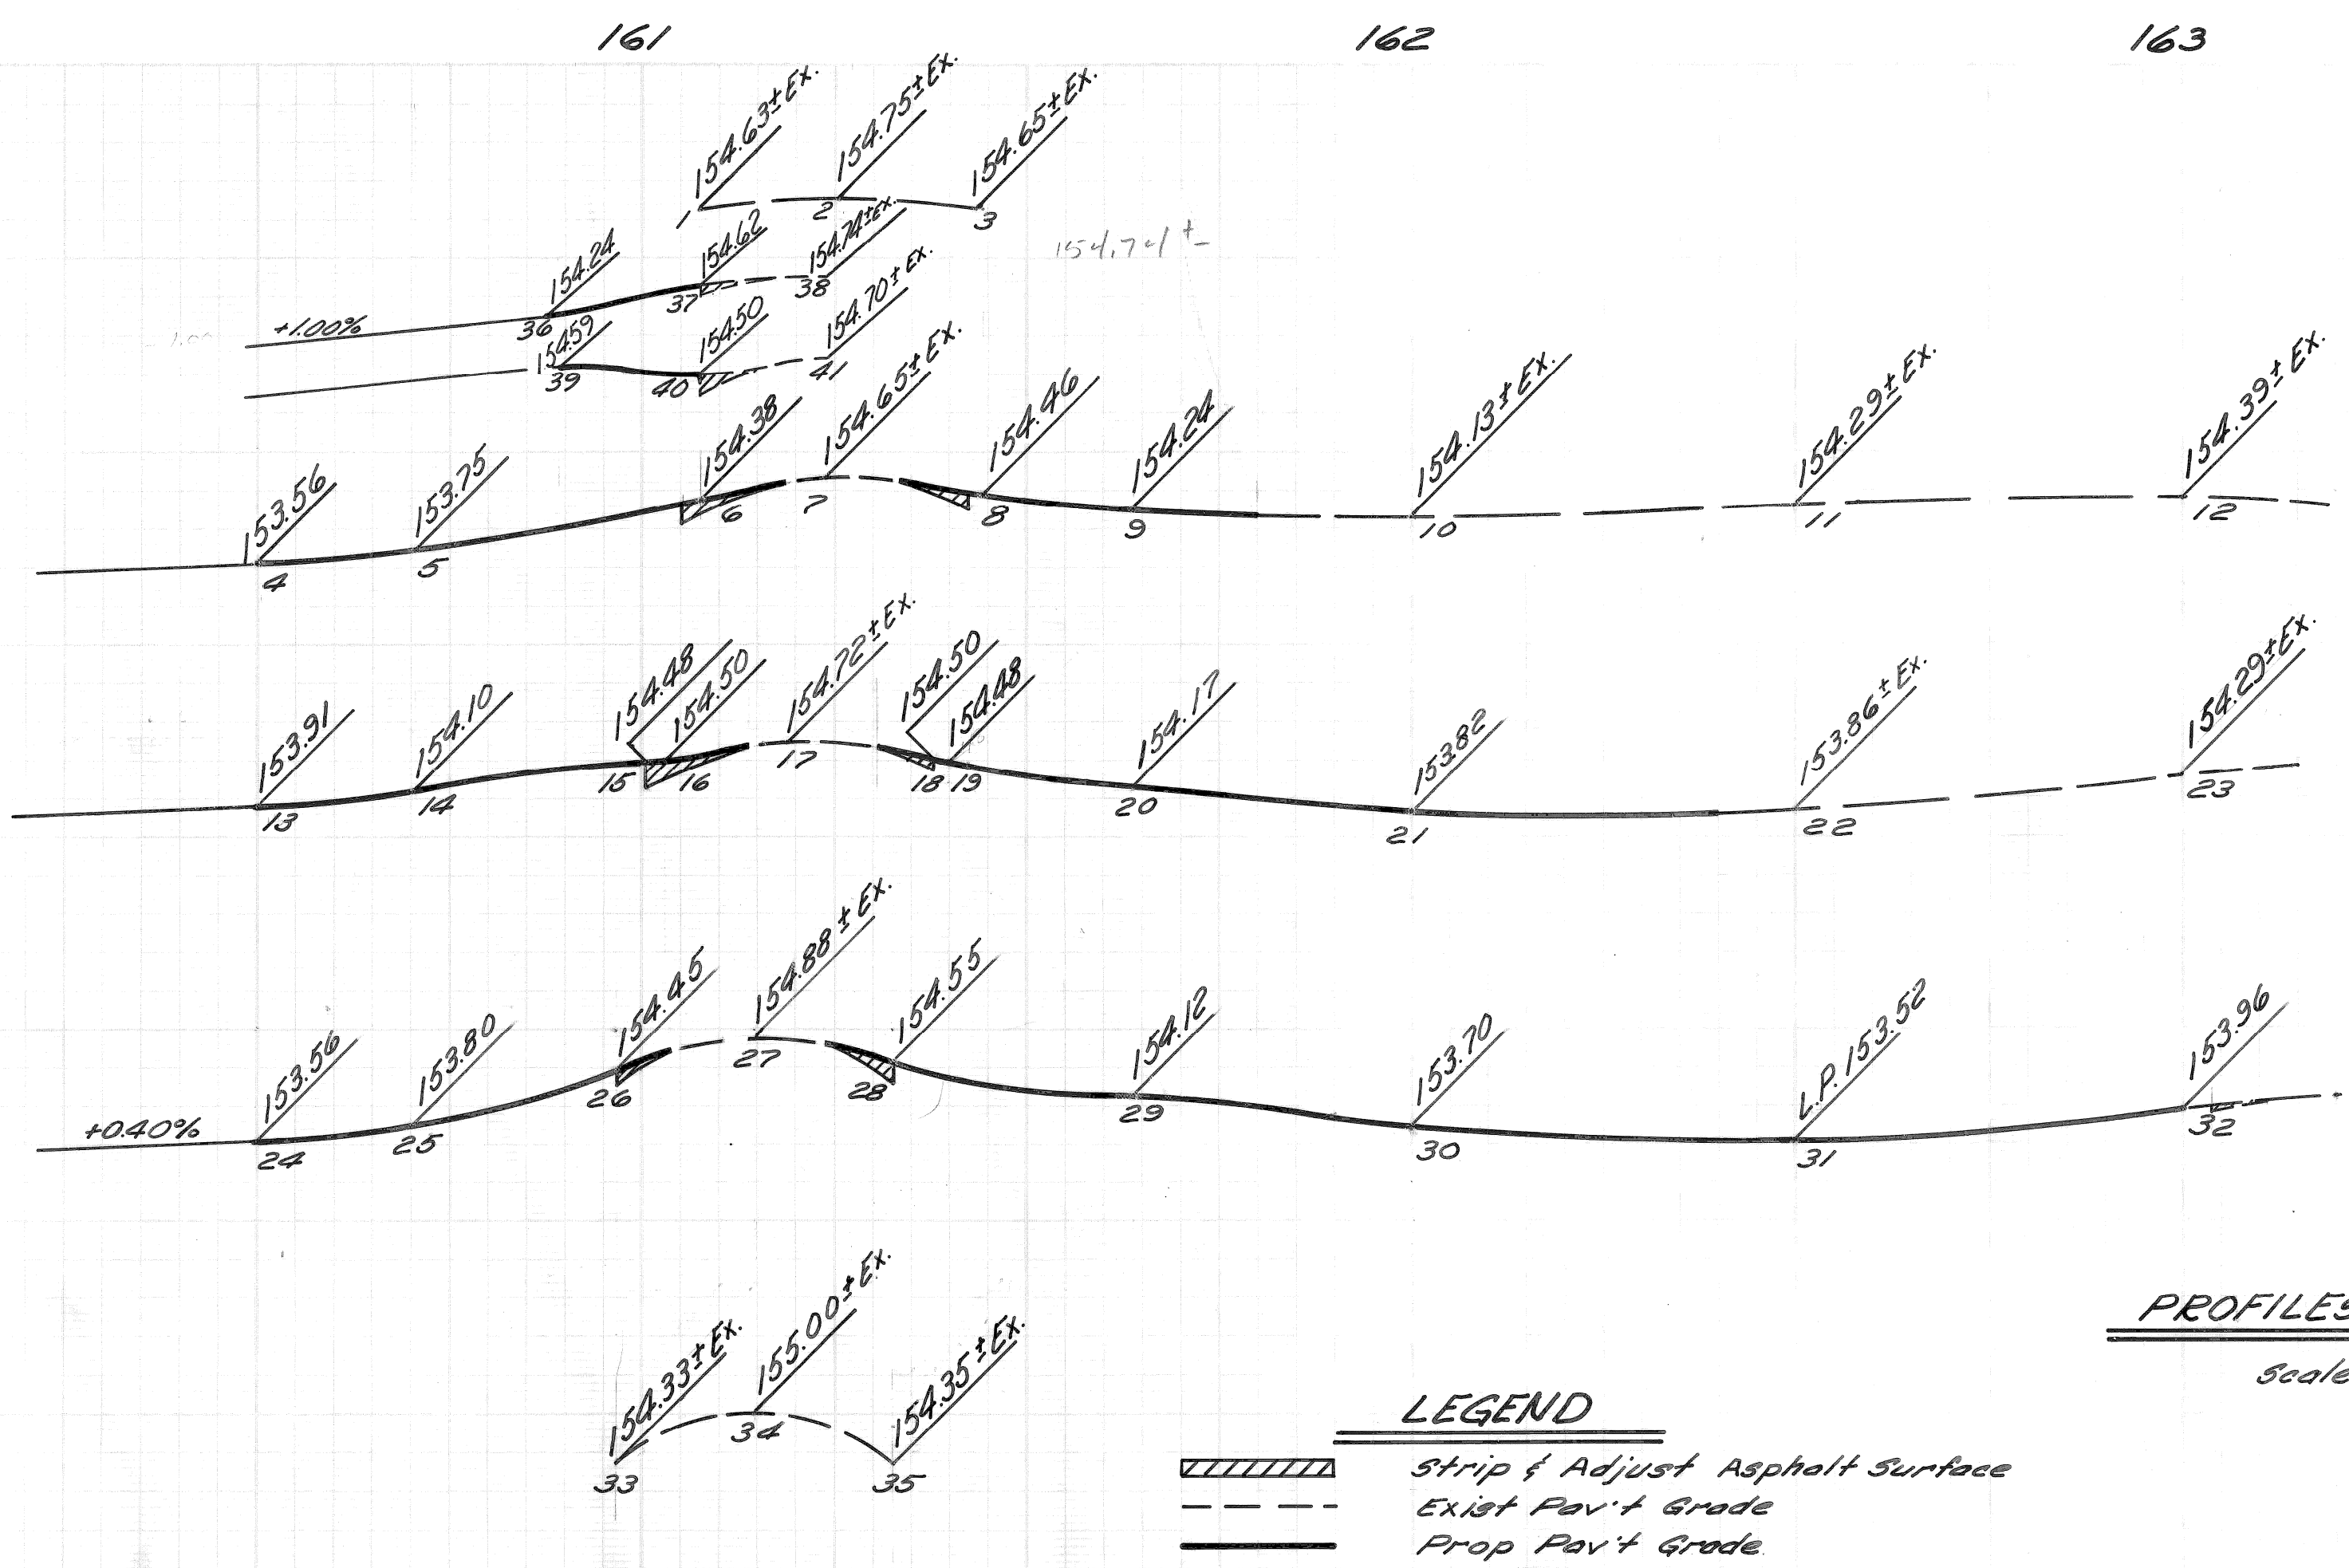 161 162 163
154.63± Ex. 154.75± Ex. 154.65± Ex.
1 2 3
154.74±
154.24 154.62 154.74± Ex.
+1.00% 36 37 38
154.59 154.50 154.70± Ex.
39 40 41
153.56 153.75 154.38 154.65± Ex. 154.46 154.24 154.13± Ex. 154.29± Ex. 154.39± Ex.
4 5 6 7 8 9 10 11 12
153.91 154.10 154.48 154.50 154.72± Ex. 154.50 154.48 154.17 153.82 153.86± Ex. 154.29± Ex.
13 14 15 16 17 18 19 20 21 22 23
153.56 153.80 154.45 154.88± Ex. 154.55 154.12 153.70 L.P. 153.52 153.96
+0.40% 24 25 26 27 28 29 30 31 32
154.33± Ex. 155.00± Ex. 154.35± Ex.
33 34 35
PROFILES
Scale
LEGEND
Strip & Adjust Asphalt Surface
Exist Pav't Grade
Prop Pav't Grade